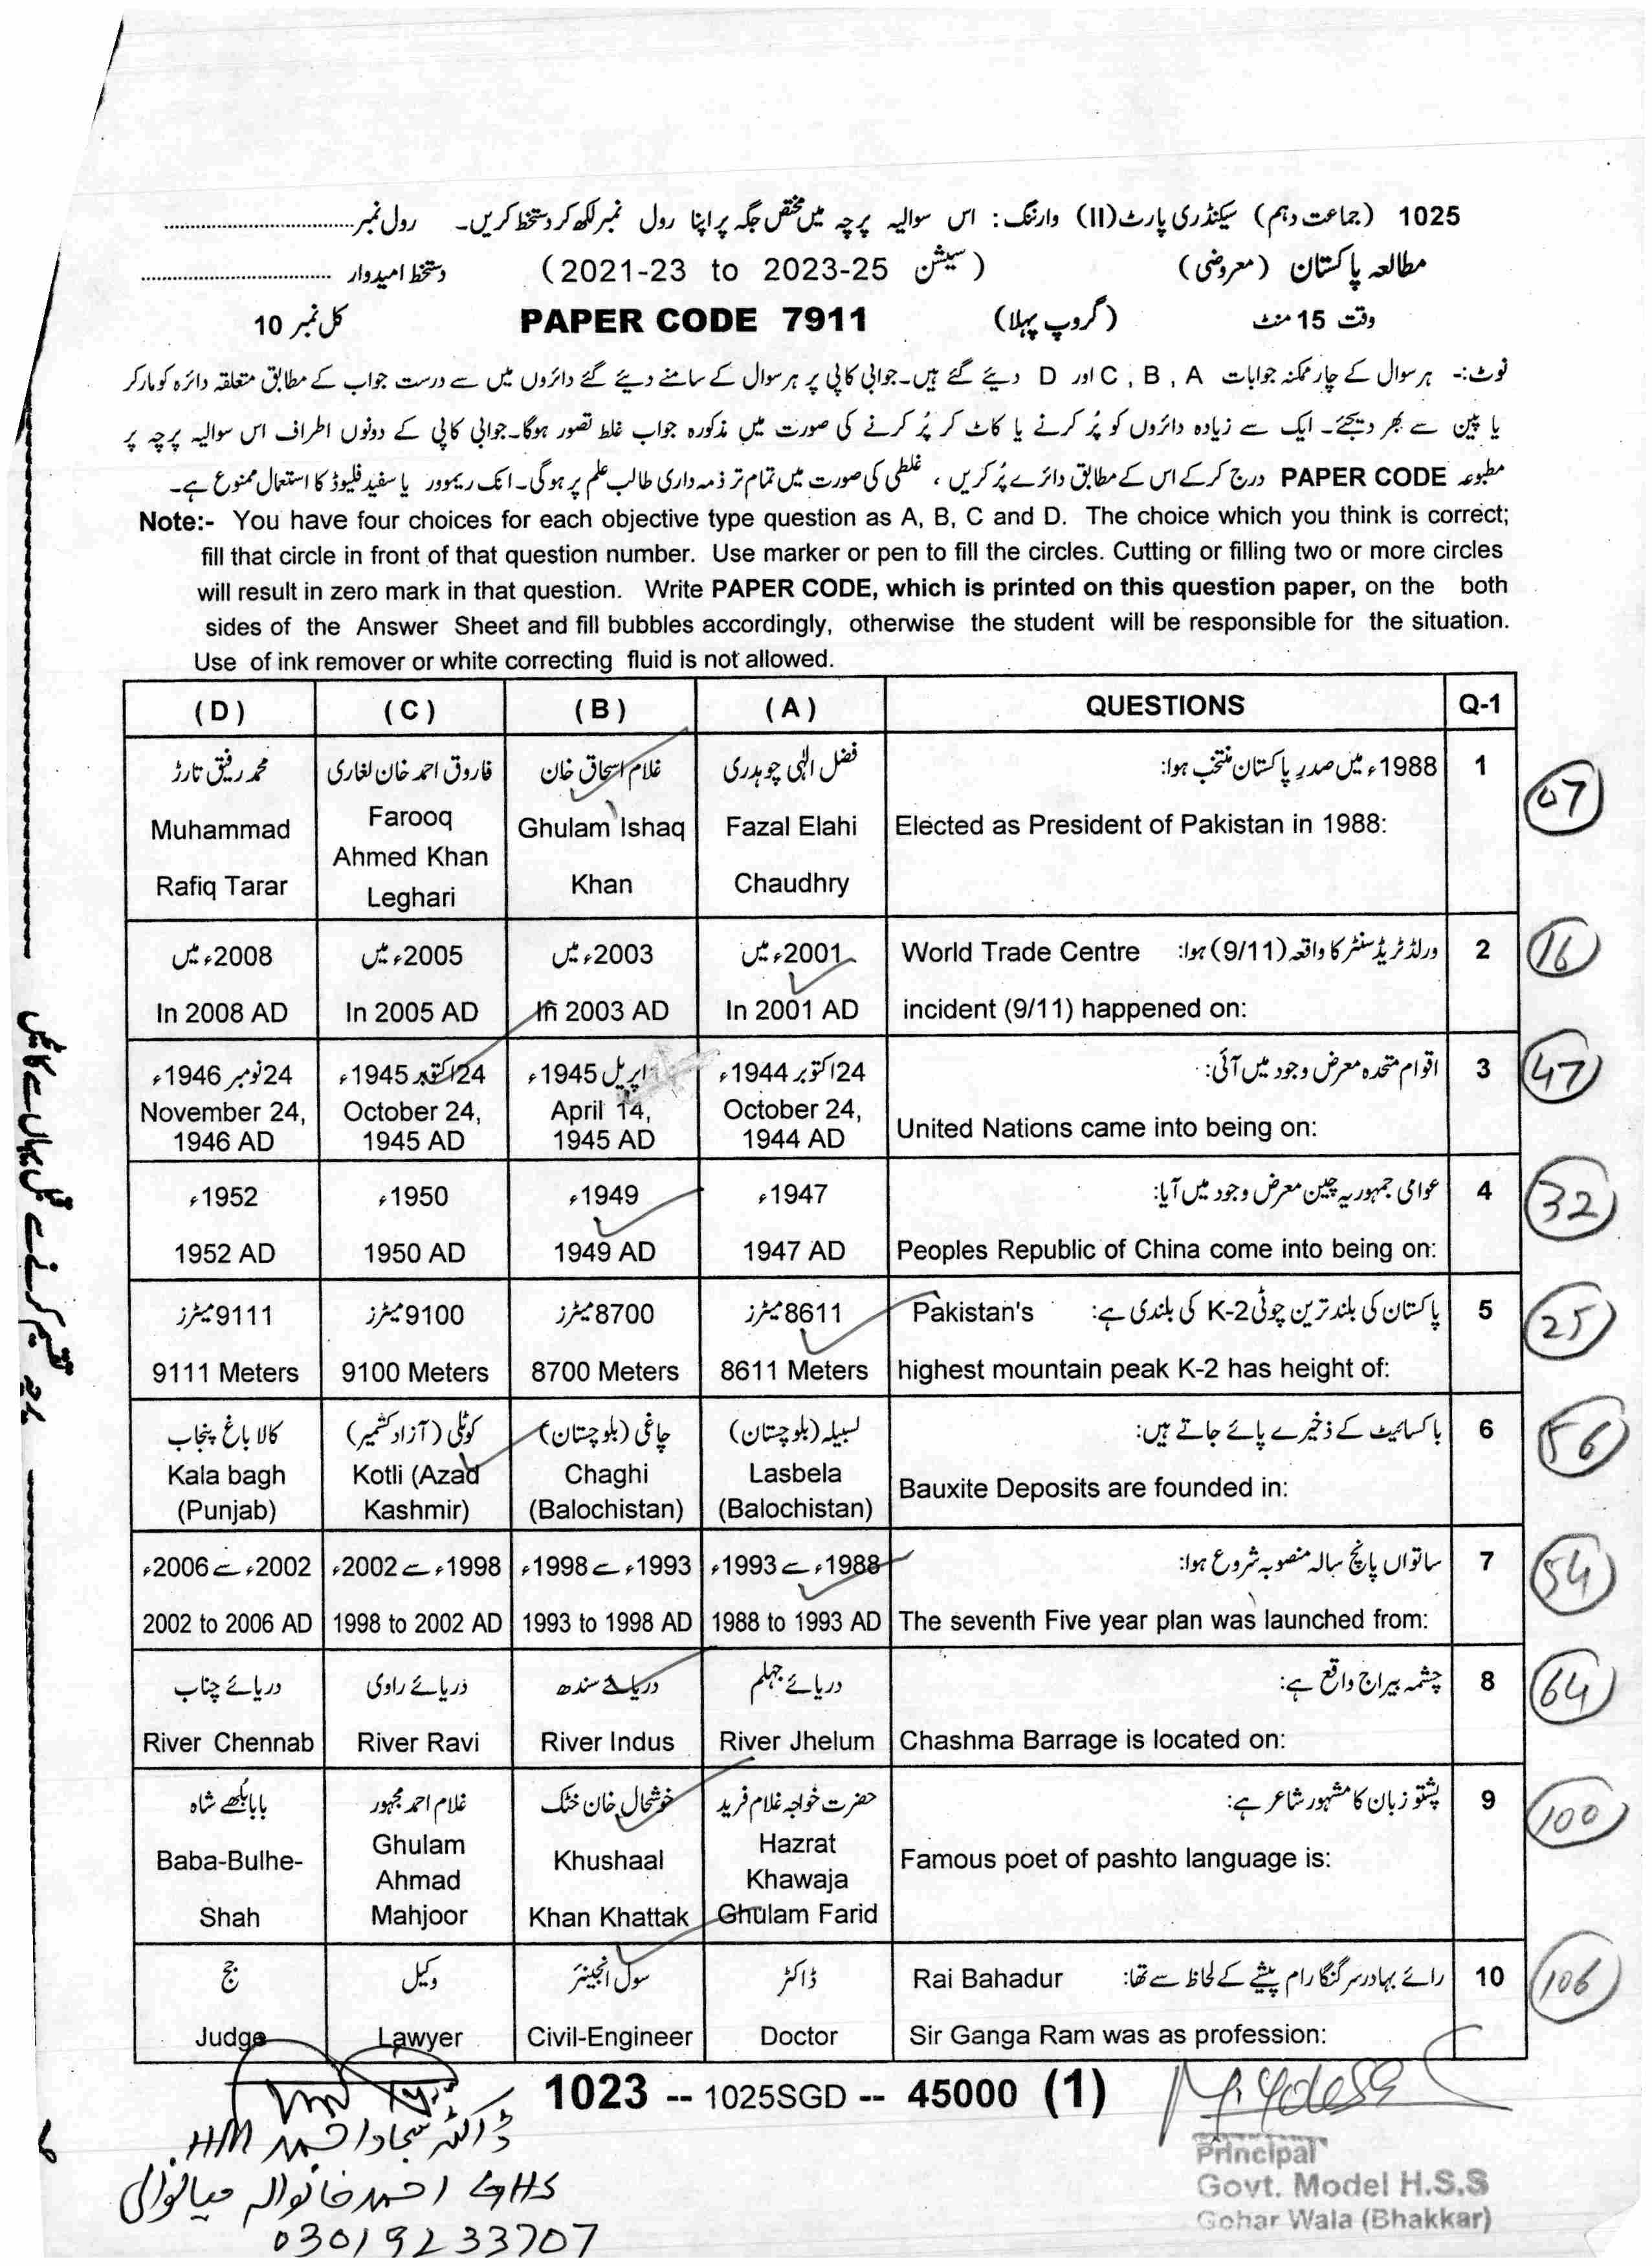 1025 (جماعت دہم) سیکنڈری پارٹ (II) وارننگ: اس سوالیہ پرچہ میں مختص جگہ پر اپنا رول نمبر لکھ کر دستخط کریں۔ رول نمبر
مطالعہ پاکستان (معروضی) (سیشن 2021-23 to 2023-25) دستخط امیدوار
وقت 15 منٹ (گروپ پہلا) PAPER CODE 7911 کل نمبر 10
نوٹ:- ہر سوال کے چار ممکنہ جوابات A , B , C اور D دیئے گئے ہیں۔ جوابی کاپی پر ہر سوال کے سامنے دیئے گئے دائروں میں سے درست جواب کے مطابق متعلقہ دائرہ کو مارکر
یا پین سے بھر دیجئے۔ ایک سے زیادہ دائروں کو پُر کرنے یا کاٹ کر پُر کرنے کی صورت میں مذکورہ جواب غلط تصور ہوگا۔ جوابی کاپی کے دونوں اطراف اس سوالیہ پرچہ پر
مطبوعہ PAPER CODE درج کر کے اس کے مطابق دائرے پُر کریں، غلطی کی صورت میں تمام تر ذمہ داری طالب علم پر ہوگی۔ انک ریموور یا سفید فلیوڈ کا استعمال ممنوع ہے۔
Note:- You have four choices for each objective type question as A, B, C and D. The choice which you think is correct;
fill that circle in front of that question number. Use marker or pen to fill the circles. Cutting or filling two or more circles
will result in zero mark in that question. Write PAPER CODE, which is printed on this question paper, on the both
sides of the Answer Sheet and fill bubbles accordingly, otherwise the student will be responsible for the situation.
Use of ink remover or white correcting fluid is not allowed.
(D) (C) (B) (A) QUESTIONS Q-1
محمد رفیق تارڑ فاروق احمد خان لغاری غلام اسحاق خان فضل الٰہی چوہدری 1988ء میں صدرِ پاکستان منتخب ہوا: 1
Muhammad Rafiq Tarar Farooq Ahmed Khan Leghari Ghulam Ishaq Khan Fazal Elahi Chaudhry Elected as President of Pakistan in 1988:
07
2008ء میں 2005ء میں 2003ء میں 2001ء میں World Trade Centre ورلڈ ٹریڈ سنٹر کا واقعہ (9/11) ہوا: 2
In 2008 AD In 2005 AD In 2003 AD In 2001 AD incident (9/11) happened on:
16
24 نومبر 1946ء 24 اکتوبر 1945ء اپریل 1945ء 24 اکتوبر 1944ء اقوام متحدہ معرض وجود میں آئی: 3
November 24, 1946 AD October 24, 1945 AD April 14, 1945 AD October 24, 1944 AD United Nations came into being on:
47
1952ء 1950ء 1949ء 1947ء عوامی جمہوریہ چین معرض وجود میں آیا: 4
1952 AD 1950 AD 1949 AD 1947 AD Peoples Republic of China come into being on:
32
9111 میٹرز 9100 میٹرز 8700 میٹرز 8611 میٹرز Pakistan's پاکستان کی بلند ترین چوٹی K-2 کی بلندی ہے: 5
9111 Meters 9100 Meters 8700 Meters 8611 Meters highest mountain peak K-2 has height of:
25
کالا باغ پنجاب کوٹلی (آزاد کشمیر) چاغی (بلوچستان) لسبیلہ (بلوچستان) باکسائیٹ کے ذخیرے پائے جاتے ہیں: 6
Kala bagh (Punjab) Kotli (Azad Kashmir) Chaghi (Balochistan) Lasbela (Balochistan) Bauxite Deposits are founded in:
56
2002ء سے 2006ء 1998ء سے 2002ء 1993ء سے 1998ء 1988ء سے 1993ء ساتواں پانچ سالہ منصوبہ شروع ہوا: 7
2002 to 2006 AD 1998 to 2002 AD 1993 to 1998 AD 1988 to 1993 AD The seventh Five year plan was launched from:
54
دریائے چناب دریائے راوی دریائے سندھ دریائے جہلم چشمہ بیراج واقع ہے: 8
River Chennab River Ravi River Indus River Jhelum Chashma Barrage is located on:
64
بابا بلھے شاہ غلام احمد مجہور خوشحال خان خٹک حضرت خواجہ غلام فرید پشتو زبان کا مشہور شاعر ہے: 9
Baba-Bulhe-Shah Ghulam Ahmad Mahjoor Khushaal Khan Khattak Hazrat Khawaja Ghulam Farid Famous poet of pashto language is:
100
جج وکیل سول انجینئر ڈاکٹر Rai Bahadur رائے بہادر سر گنگا رام پیشے کے لحاظ سے تھا: 10
Judge Lawyer Civil-Engineer Doctor Sir Ganga Ram was as profession:
106
1023 -- 1025SGD -- 45000 (1)
ڈاکٹر سجاد احمد HM
GHS احمد خانوالہ میانوالی
03019233707
Principal
Govt. Model H.S.S
Gohar Wala (Bhakkar)